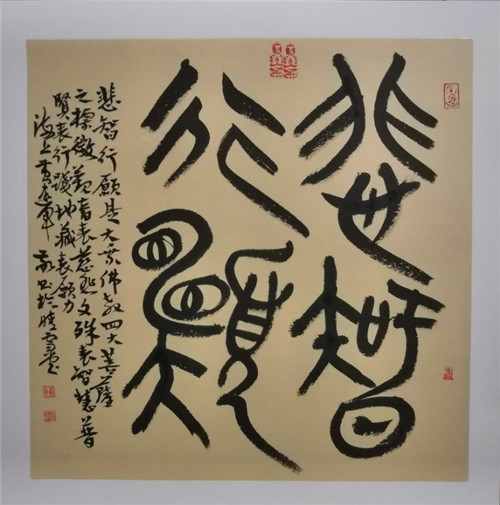 悲智
行願
悲智行願是大乘佛教四大菩薩
之標徵觀音表慈悲文殊表智慧普
賢表行踐地藏表願力
海上